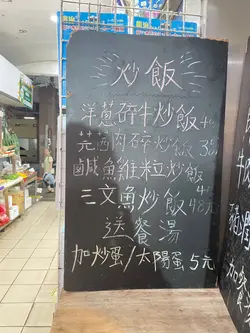 炒飯
洋蔥碎牛炒飯
芫茜肉碎炒飯
鹹魚雞粒炒飯
三文魚炒飯 48元
送餐湯
加炒蛋/太陽蛋 5元